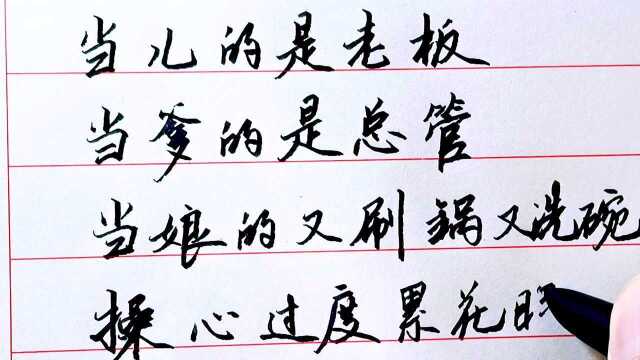 当儿的是老板
当爹的是总管
当娘的又刷鍋又洗碗
操心过度累花